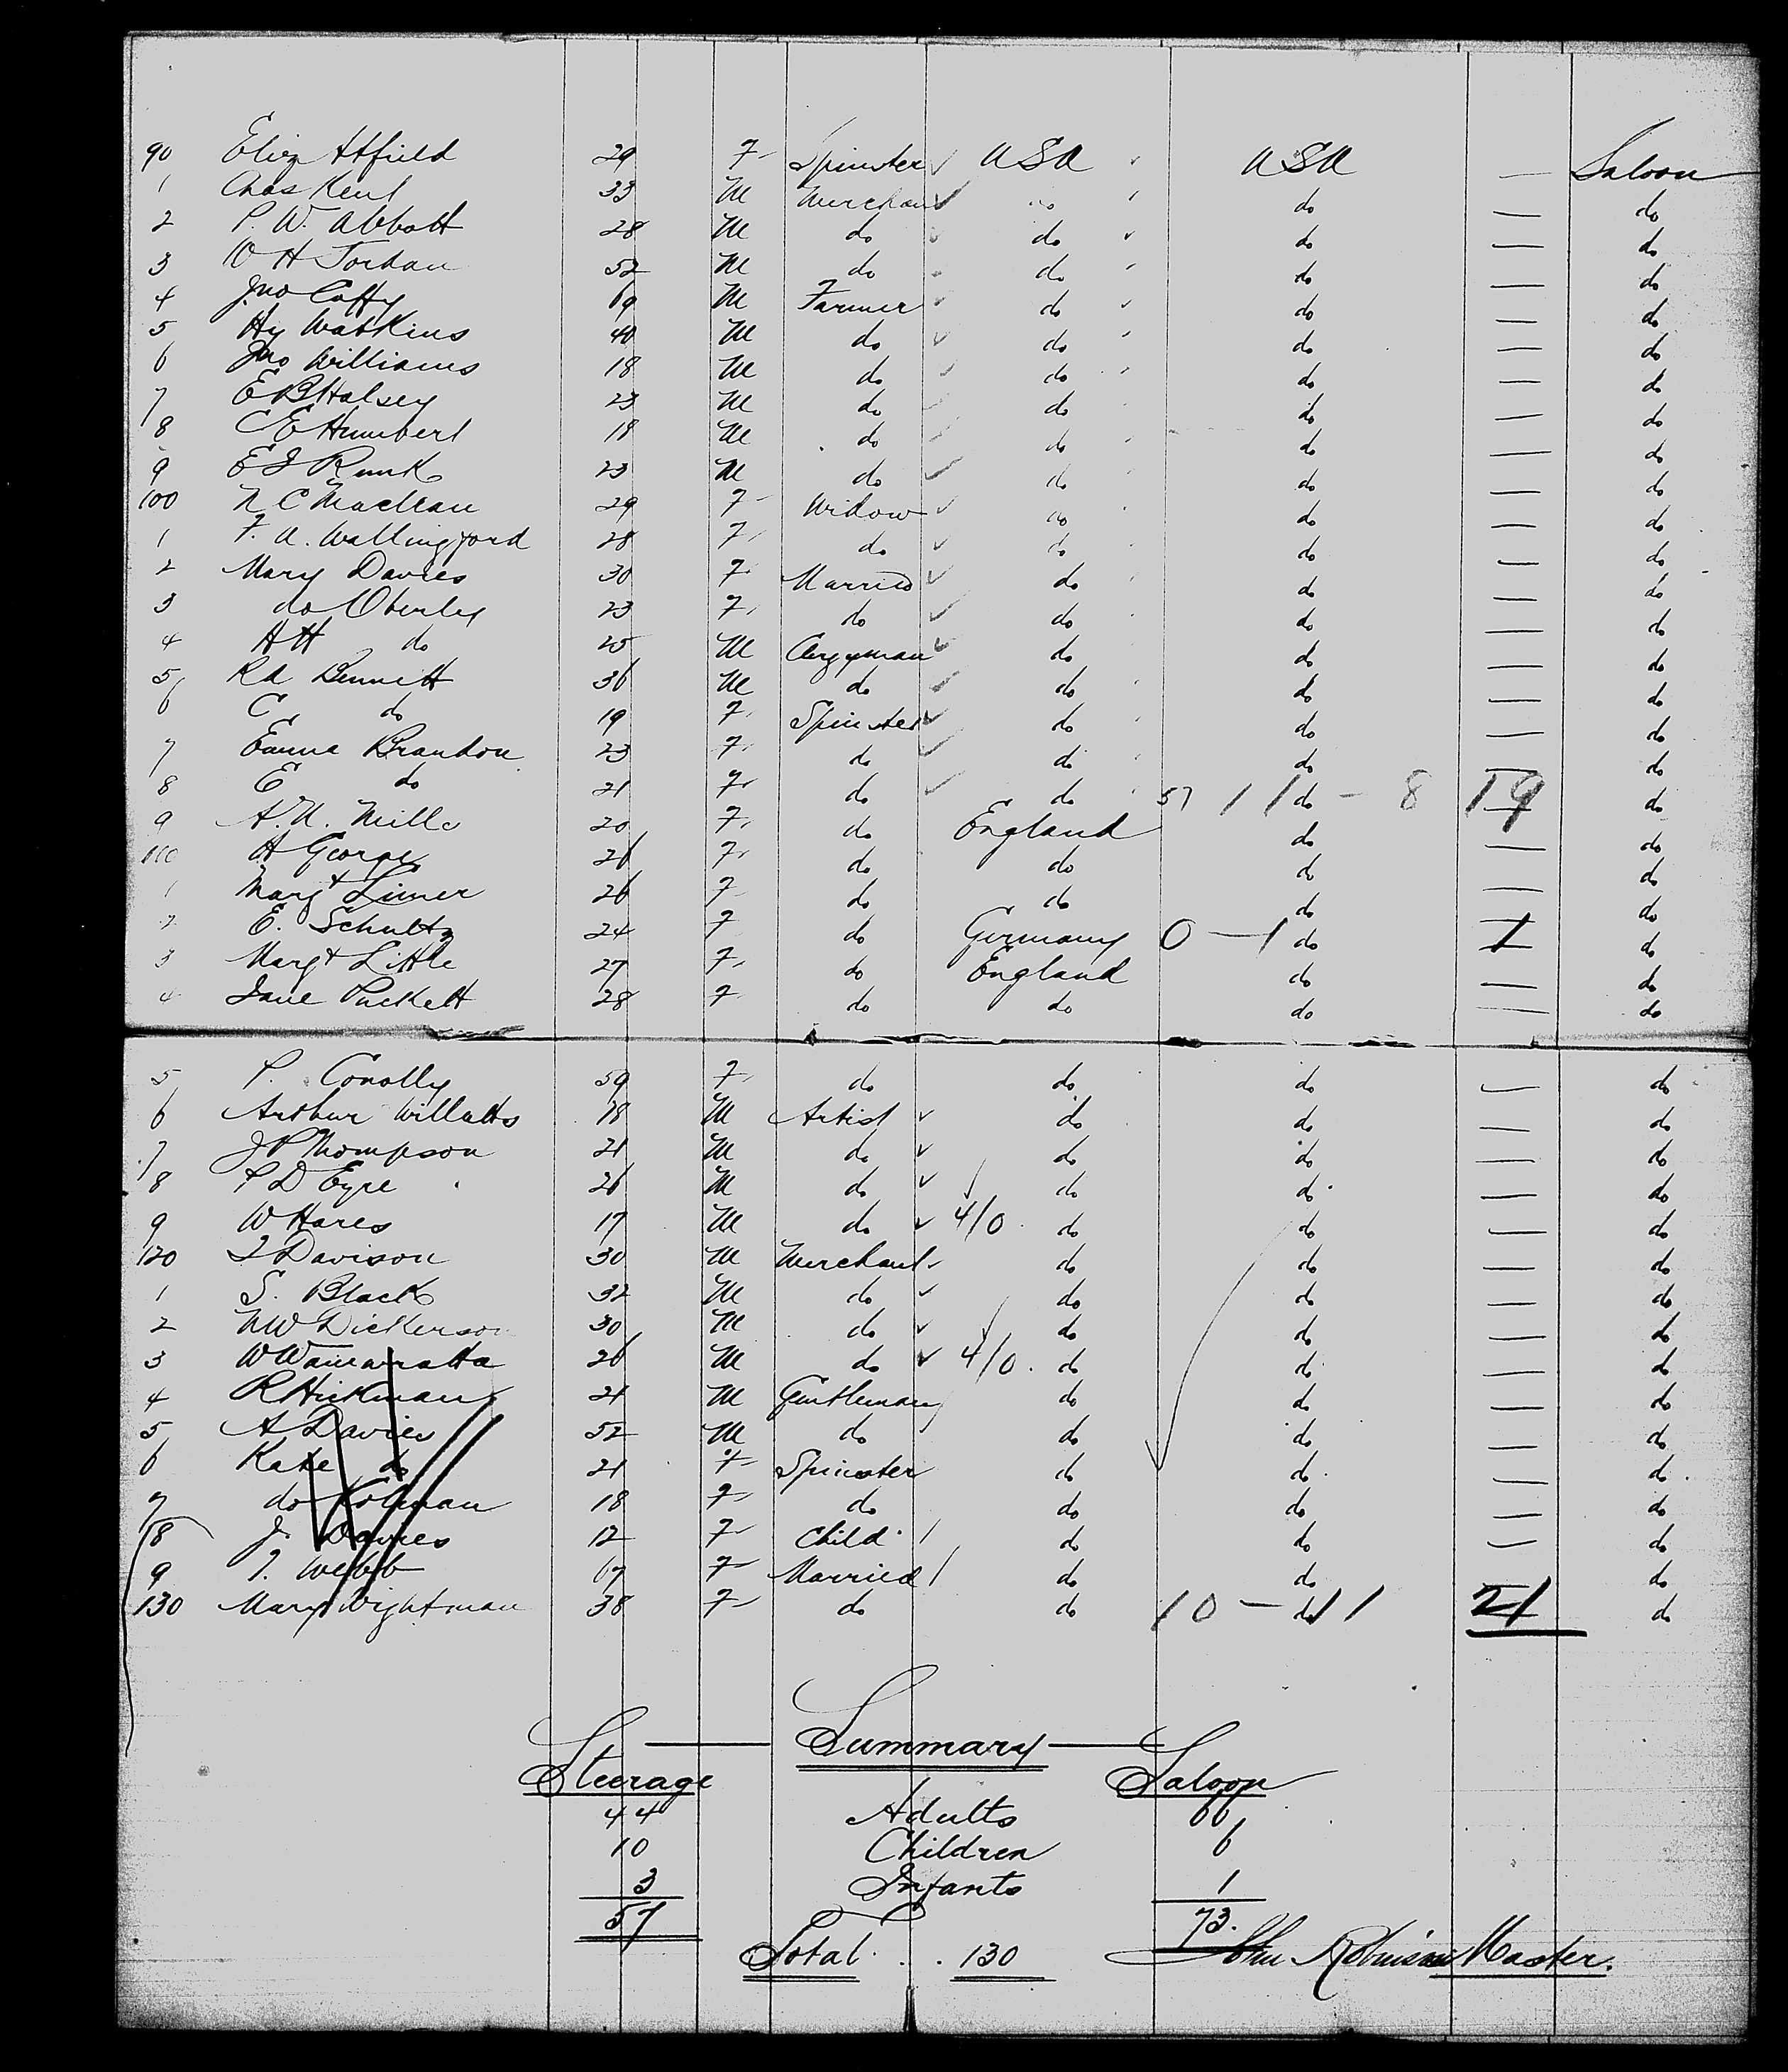 90 Eliz Attfield 29 F Spinster USA USA — Saloon
1 Chas Kent 33 M Merchant do do — do
2 P. W. Abbott 28 M do do do — do
3 W H Jordan 52 M do do do — do
4 Jno Caffy 69 M Farmer do do — do
5 Hy Watkins 40 M do do do — do
6 Jno Williams 18 M do do do — do
7 E B Halsey 23 M do do do — do
8 C E Humbert 18 M do do do — do
9 E J Runk 23 M do do do — do
100 N C Maclean 29 F Widow do do — do
1 F. A. Wallingford 28 F do do do — do
2 Mary Davies 30 F Married do do — do
3 do Oberley 23 F do do do — do
4 H H do 25 M Clergyman do do — do
5 Rd Bennett 36 M do do do — do
6 C do 19 F Spinster do do — do
7 Emma Brandon 23 F do do do — do
8 E do 21 F do do 57 11 do - 8 19 do
9 A. N. Mills 20 F do England do — do
110 H George 26 F do do do — do
1 Margt Limer 26 F do do do — do
2 E. Schultz 24 F do Germany 0 - 1 do 1 do
3 Margt Little 27 F do England do — do
4 Jane Puckett 28 F do do do — do
5 P. Conolly 59 F do do do — do
6 Arthur Willatts 18 M Artist do do — do
7 J P Thompson 21 M do do do — do
8 P D Eyre 26 M do do do — do
9 W Hares 17 M do 4/0 do do — do
120 J Davison 30 M Merchant do do — do
1 S. Black 32 M do do do — do
2 N W Dickerson 30 M do do do — do
3 W 26 M do 4/0 do do — do
4 R Hickman 21 M Gentleman do do — do
5 A Davies 52 M do do do — do
6 Kate do 21 F Spinster do do — do
7 do 18 F do do do — do
8 J. Davies 12 F Child do do — do
9 J. Webb 67 F Married do do — do
130 Mary Wightman 38 F do do 10 - do 11 21 do
Summary
Steerage Saloon
44 Adults 66
10 Children 6
3 Infants 1
57 73.
Total . . 130 John Robinson Master.